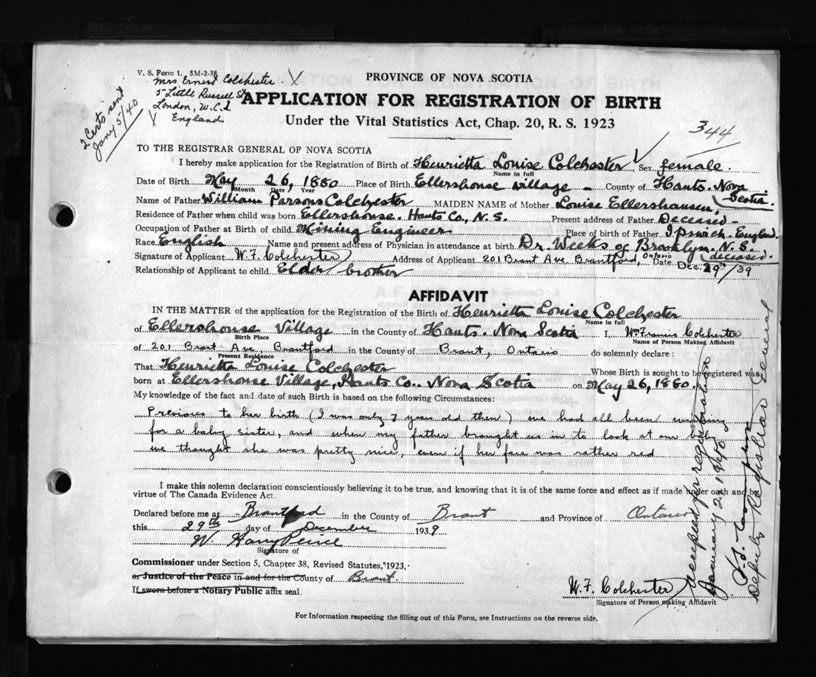 V. S. Form 1. 3M-2-38
Mrs Ernest Colchester. V
5 Little Russell St
London, W.C.1
England
2 Certs sent
Jany 5/40
PROVINCE OF NOVA SCOTIA
APPLICATION FOR REGISTRATION OF BIRTH
Under the Vital Statistics Act, Chap. 20, R. S. 1923
344
TO THE REGISTRAR GENERAL OF NOVA SCOTIA
I hereby make application for the Registration of Birth of Henrietta Louise Colchester Sex female.
Name in full
Date of Birth May 26, 1880 Place of Birth Ellershouse Village - County of Hants. Nova Scotia.
Month Date Year
Name of Father William Parsons Colchester MAIDEN NAME of Mother Louise Ellershausen.
Residence of Father when child was born Ellershouse. Hants Co, N. S. Present address of Father Deceased
Occupation of Father at Birth of child Mining Engineer Place of birth of Father Ipswich. England.
Race English Name and present address of Physician in attendance at birth Dr. Weeks of Brooklyn. N. S. (deceased.
Signature of Applicant W. F. Colchester Address of Applicant 201 Brant Ave. Brantford, Ontario Date Dec. 29th/39
Relationship of Applicant to child Elder brother
AFFIDAVIT
IN THE MATTER of the application for the Registration of the Birth of Henrietta Louise Colchester
Name in full
of Ellershouse Village in the County of Hants. Nova Scotia I, Wm Francis Colchester
Birth Place
Name of Person Making Affidavit
of 201 Brant Ave, Brantford in the County of Brant, Ontario do solemnly declare :
Present Residence
That Henrietta Louise Colchester Whose Birth is sought to be registered was
born at Ellershouse Village, Hants Co.. Nova Scotia on May 26, 1880.
My knowledge of the fact and date of such Birth is based on the following Circumstances:
Previous to her birth (I was only 7 years old then) we had all been wishing
for a baby sister, and when my father brought us in to look at our baby
we thought she was pretty nice, even if her face was rather red
I make this solemn declaration conscientiously believing it to be true, and knowing that it is of the same force and effect as if made under oath and by
virtue of The Canada Evidence Act.
Declared before me at Brantford in the County of Brant and Province of Ontario
this 29th day of December 1939
W. Harry Peirce
Signature of
Commissioner under Section 5, Chapter 38, Revised Statutes, 1923,
or Justice of the Peace in and for the County of Brant.
If sworn before a Notary Public affix seal.
W. F. Colchester
Signature of Person making Affidavit
accepted for registration
January 2, 1940
Deputy Registrar General
For Information respecting the filling out of this Form, see Instructions on the reverse side.